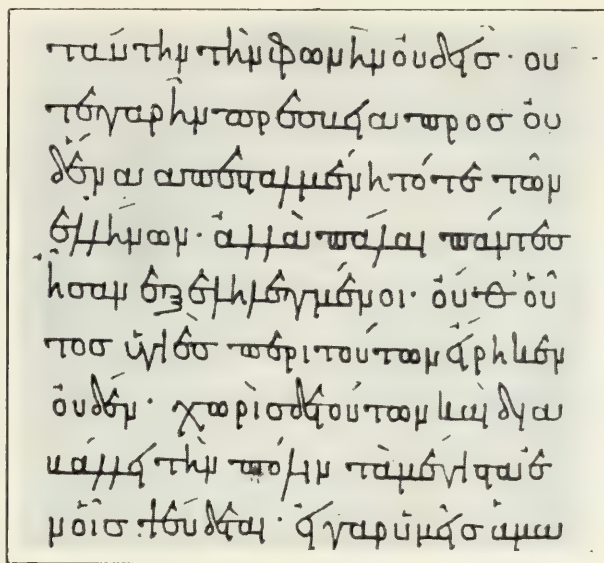 ταύτην τὴν φωνὴν οὐδείς· οὐ
τε γὰρ ἦν πρεσβεία προς οὐ
δένα ἀπεσταλμένη τότε τῶν
ἑλλήνων· ἀλλὰ πάλαι πάντες
ἦσαν ἐξεληλεγμένοι· οὔθ' οὗ
τος ὑγιὲς περὶ τούτων εἴρηκεν
οὐδέν· χωρὶς δὲ τούτων καὶ δια
βάλλει τὴν πόλιν τὰ μέγιστα ἐ
ν οἷς ψεύδεται· εἰ γὰρ ὑμεῖς ἅμα